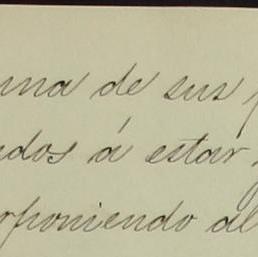 una de sus
dos á estar
poniendo al